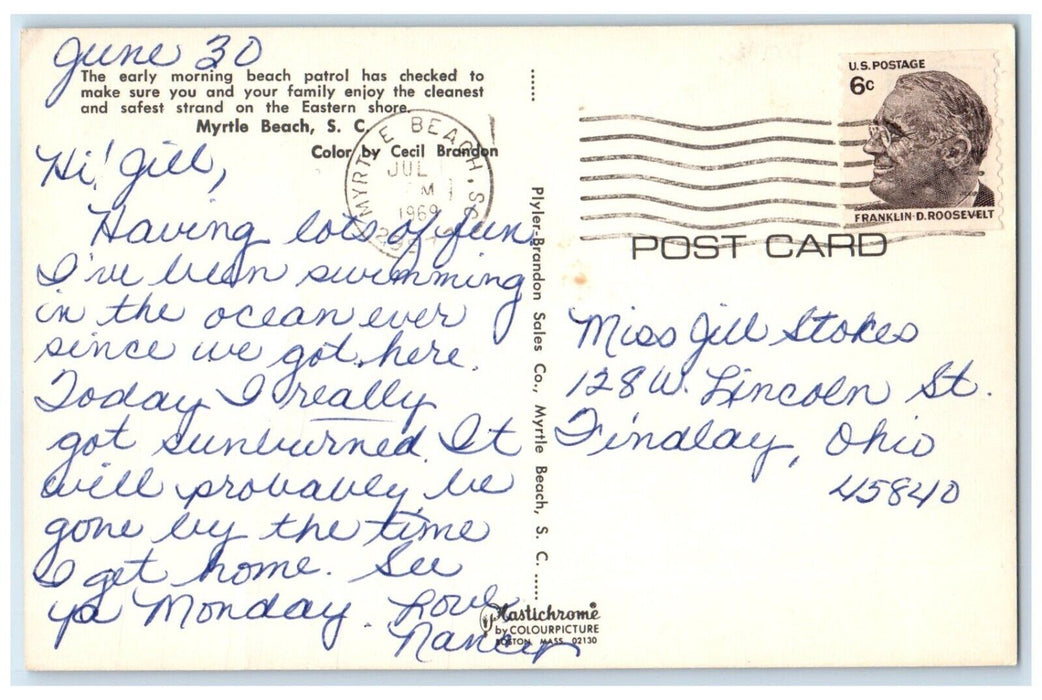 June 30
The early morning beach patrol has checked to
make sure you and your family enjoy the cleanest
and safest strand on the Eastern shore.
Myrtle Beach, S. C.
Color by Cecil Brandon
Hi! Jill,
Having lots of fun.
I've been swimming
in the ocean ever
since we got here.
Today I really
got sunburned. It
will probably be
gone by the time
I get home. See
ya Monday. Love
Nancy
MYRTLE BEACH, SC
JUL
M
1969
Plyler-Brandon Sales Co., Myrtle Beach, S. C.
Plastichrome®
by COLOURPICTURE
BOSTON, MASS. 02130
U.S. POSTAGE
6c
FRANKLIN·D·ROOSEVELT
POST CARD
Miss Jill Stokes
128 W. Lincoln St.
Findlay, Ohio
45840